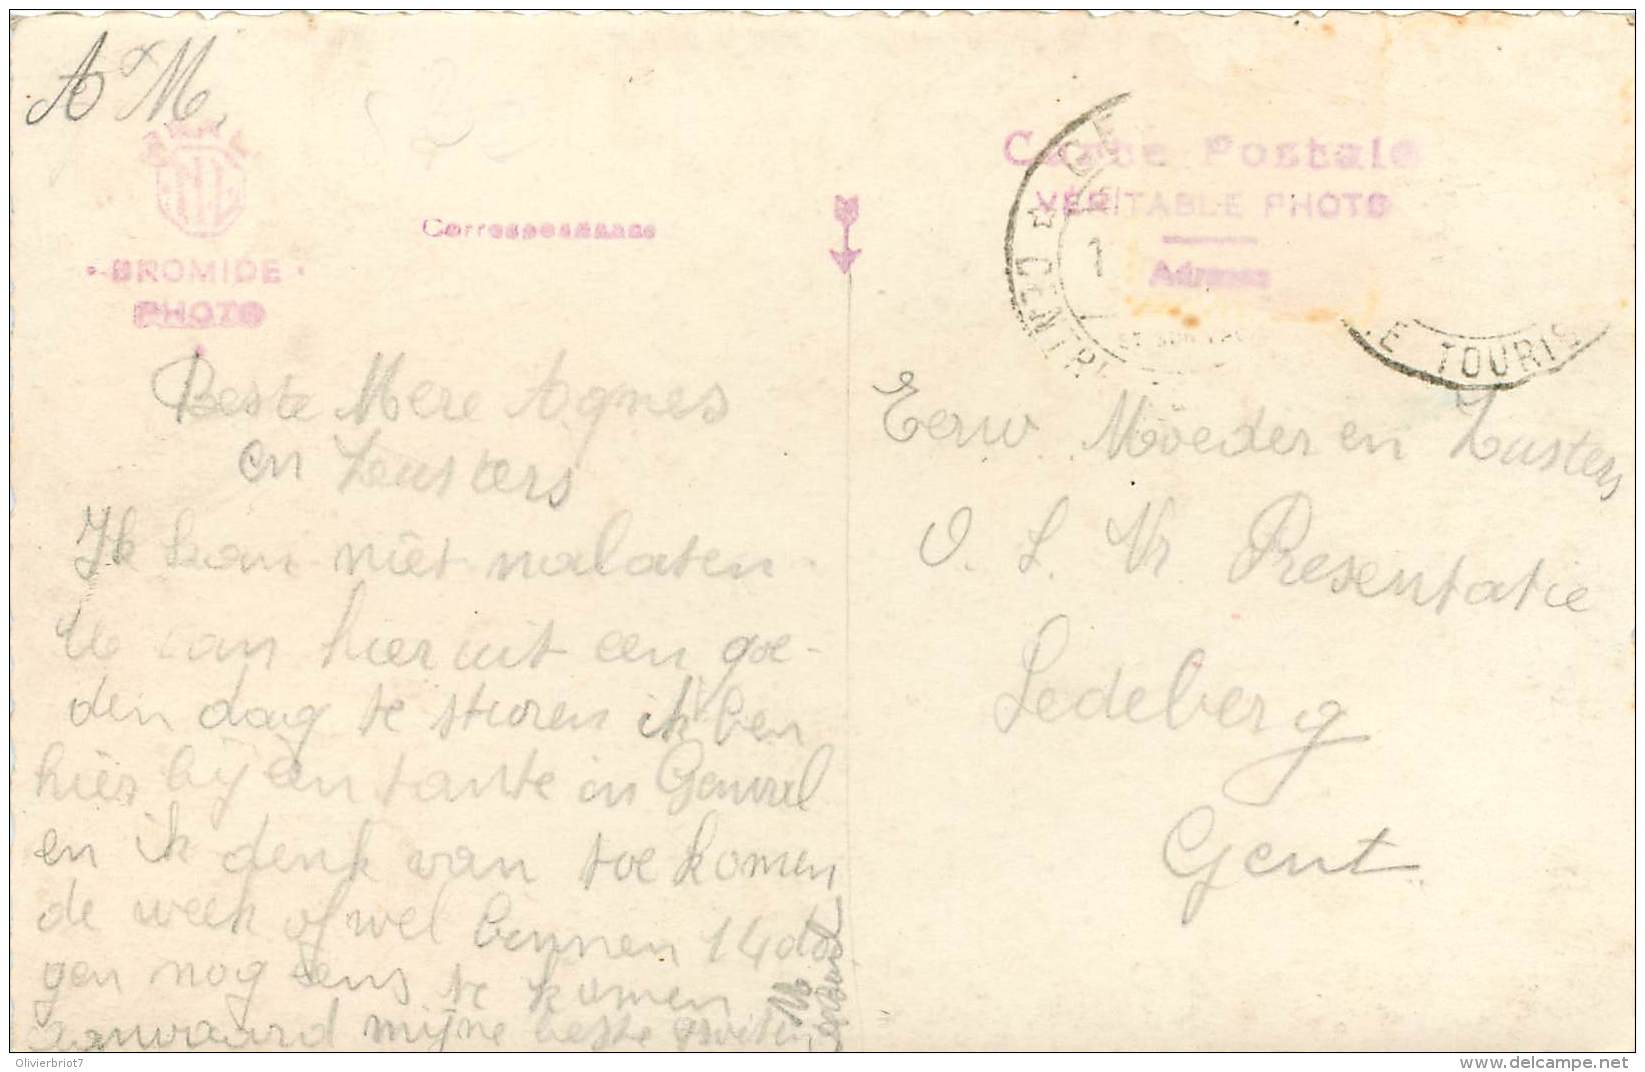 A x M.
BROMIDE
PHOTO
Correspondance
Carte Postale
VÉRITABLE PHOTO
Adresse
GE
CENTRE TOURIS
1
Beste Mere Agnes
en Zusters
Ik kan niet nalaten
U van hier uit een goe-
den dag te sturen ik ben
hier bij een tante in Genval
en ik denk van toe komen
de week of wel binnen 14 da
gen nog eens te komen
aanvaard mijne beste groeten
Eerw Moeder en Zusters
O. L. Vr. Presentatie
Ledeberg
Gent
Olivierbriot7
www.delcampe.net